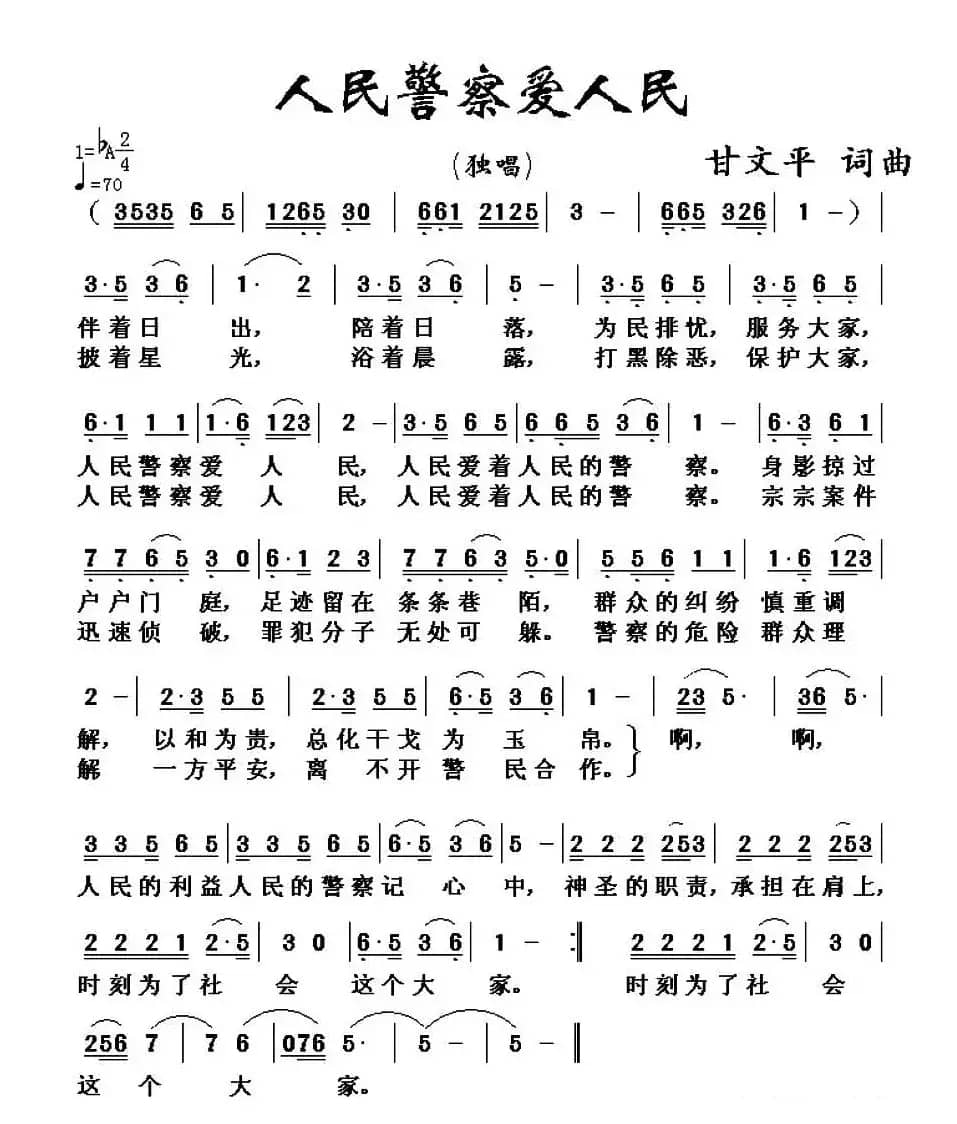 人民警察爱人民
1=♭A 2/4
♩=70
(独唱)
甘文平 词曲
( 3535 6 5 | 1265 30 | 661 2125 | 3 - | 665 326 | 1 - )
3·5 3 6 | 1· 2 | 3·5 3 6 | 5 - | 3·5 6 5 | 3·5 6 5 |
伴着日 出, 陪着日 落, 为民排忧, 服务大家,
披着星 光, 浴着晨 露, 打黑除恶, 保护大家,
6·1 1 1 | 1·6 123 | 2 - | 3·5 6 5 | 6 6 5 3 6 | 1 - | 6·3 6 1
人民警察爱 人 民, 人民爱着人民的警 察。 身影掠过
人民警察爱 人 民, 人民爱着人民的警 察。 宗宗案件
7 7 6 5 3 0 | 6·1 2 3 | 7 7 6 3 5·0 | 5 5 6 1 1 | 1·6 123 |
户户门 庭, 足迹留在 条条巷 陌, 群众的纠纷 慎重调
迅速侦 破, 罪犯分子 无处可 躲。 警察的危险 群众理
2 - | 2·3 5 5 | 2·3 5 5 | 6·5 3 6 | 1 - | 23 5· | 36 5· |
解, 以和为贵, 总化干戈 为 玉 帛。} 啊, 啊,
解 一方平安, 离 不开 警 民合 作。}
3 3 5 6 5 | 3 3 5 6 5 | 6·5 3 6 | 5 - | 2 2 2 253 | 2 2 2 253
人民的利益人民的警察记 心 中, 神圣的职责, 承担在肩上,
2 2 2 1 2·5 | 3 0 | 6·5 3 6 | 1 - :‖ 2 2 2 1 2·5 | 3 0 |
时刻为了社 会 这个大 家。 时刻为了社 会
256 7 | 7 6 | 076 5· | 5 - | 5 - ‖
这 个 大 家。